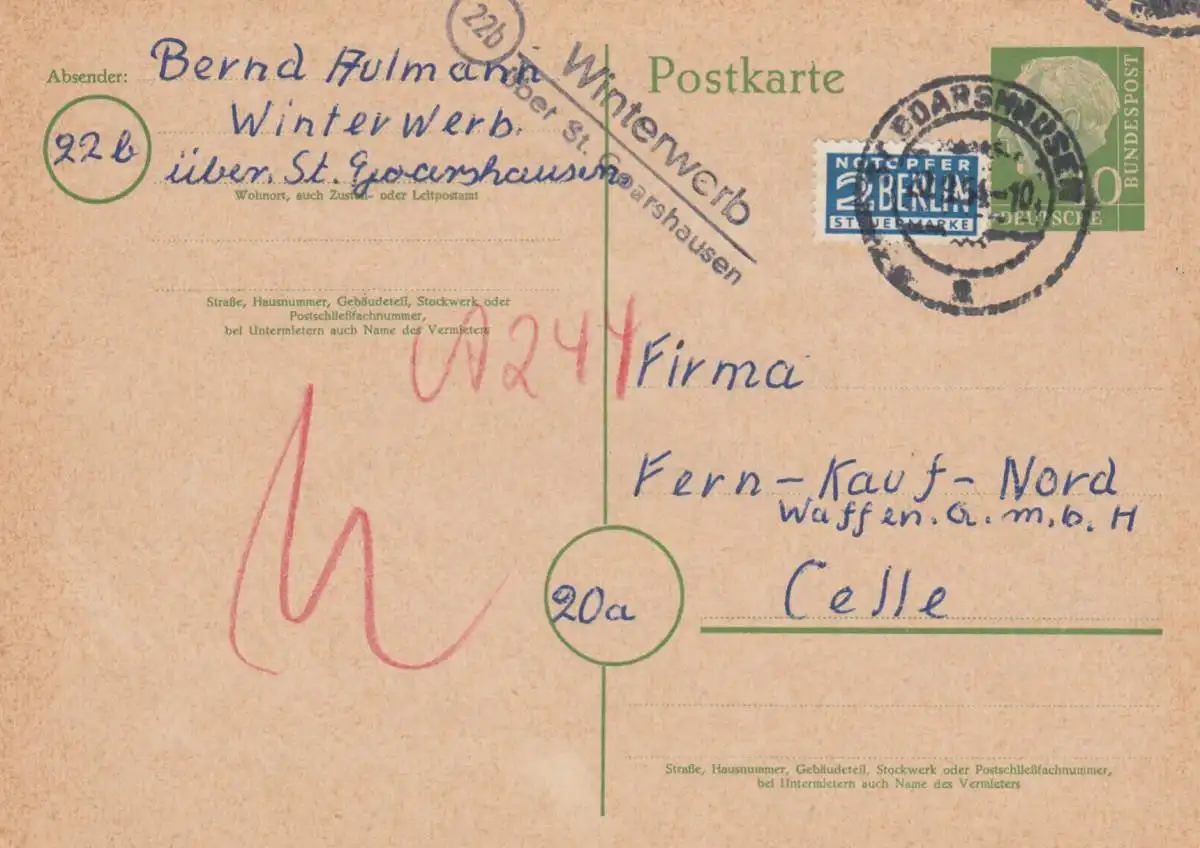 Absender: Bernd Aulmann
Winterwerb.
22b
über. St. Goarshausen.
Wohnort, auch Zustell- oder Leitpostamt
Straße, Hausnummer, Gebäudeteil, Stockwerk oder
Postschließfachnummer,
bei Untermietern auch Name des Vermieters
22b
Winterwerb
über St. Goarshausen
Postkarte
NOTOPFER
2 BERLIN
STEUERMARKE
DEUTSCHE
BUNDESPOST
A244
Firma
Fern-Kauf-Nord
Waffen. G. m. b. H
20a
Celle
Straße, Hausnummer, Gebäudeteil, Stockwerk oder Postschließfachnummer,
bei Untermietern auch Name des Vermieters